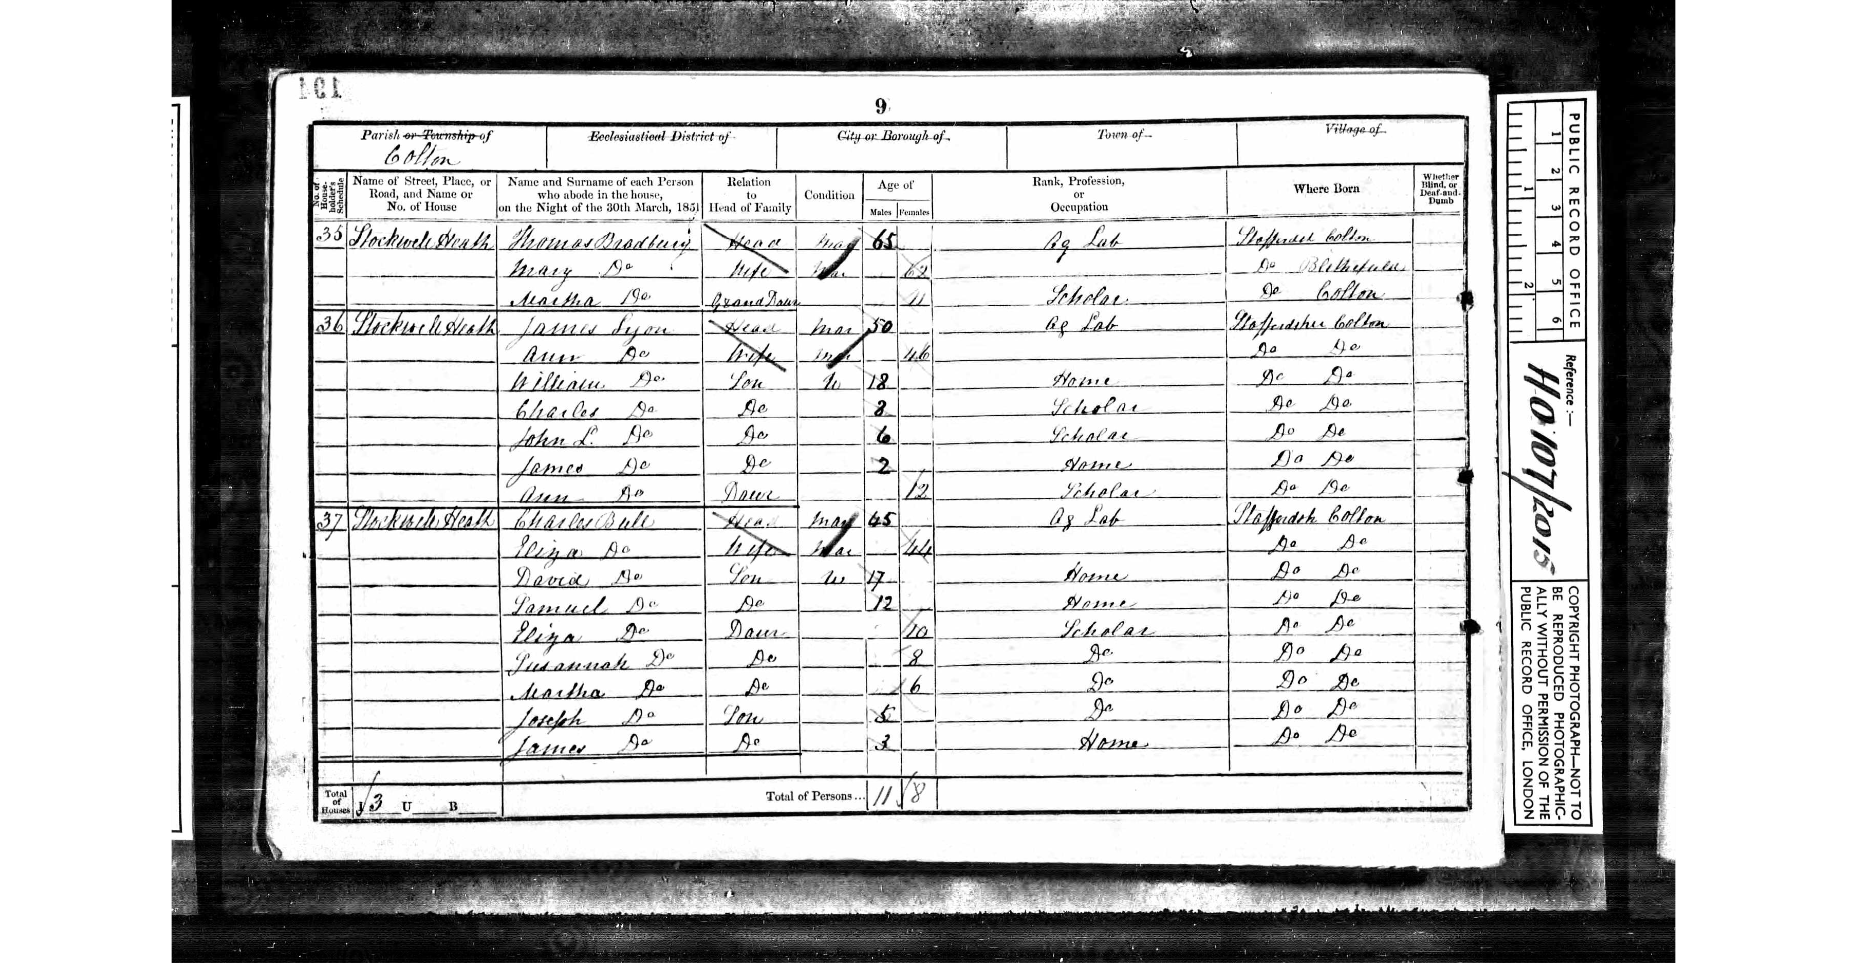 101
9
Parish or Township of Ecclesiastical District of City or Borough of Town of Village of
Colton
No. of House-holder's Schedule Name of Street, Place, or Road, and Name or No. of House Name and Surname of each Person who abode in the house, on the Night of the 30th March, 1851 Relation to Head of Family Condition Age of Males Females Rank, Profession, or Occupation Where Born Whether Blind, or Deaf-and-Dumb
35 Stockwell Heath Thomas Bradbury Head Mar 65 Ag Lab Staffordsh Colton
Mary Do Wife Mar 62 Do
Martha Do Grand Daur 11 Scholar Do Colton
36 Stockwell Heath James Lyon Head Mar 50 Ag Lab Staffordshire Colton
Ann Do Wife Mar 46 Do Do
William Do Son U 18 Home Do Do
Charles Do Do 8 Scholar Do Do
John L. Do Do 6 Scholar Do Do
James Do Do 2 Home Do Do
Ann Do Daur 12 Scholar Do Do
37 Stockwell Heath Charles Bull Head Mar 45 Ag Lab Staffordsh Colton
Eliza Do Wife Mar 44 Do Do
David Do Son U 17 Home Do Do
Samuel Do Do 12 Home Do Do
Eliza Do Daur 10 Scholar Do Do
Susannah Do Do 8 Do Do Do
Martha Do Do 6 Do Do Do
Joseph Do Son 5 Do Do Do
James Do Do 3 Home Do Do
Total of Houses I 3 U B Total of Persons... 11 8
PUBLIC RECORD OFFICE
1 2 3 4 5 6
1 2
Reference :—
HO 107/2015
COPYRIGHT PHOTOGRAPH—NOT TO
BE REPRODUCED PHOTOGRAPHIC-
ALLY WITHOUT PERMISSION OF THE
PUBLIC RECORD OFFICE, LONDON